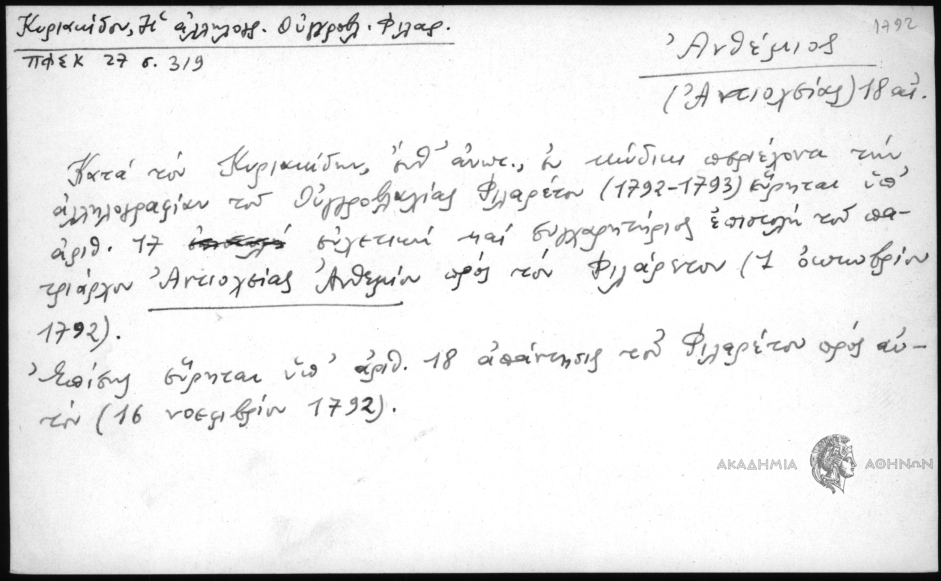 Κυριακίδου, Ἡ ἀλληλογρ. Οὐγγροβλ. Φιλαρ.
1792
ΠΦΣΚ 27 σ. 319
Ἀνθέμιος
(Ἀντιοχείας) 18 αἰ.
Κατά τόν Κυριακίδην, ἔνθ' ἀνωτ., ἐν κώδικι περιέχοντι τήν
ἀλληλογραφίαν τοῦ Οὐγγροβλαχίας Φιλαρέτου (1792-1793) εὕρηται ὑπ'
ἀριθ. 17 εὐχετική καί συγχαρητήριος ἐπιστολή τοῦ πα-
τριάρχου Ἀντιοχείας Ἀνθεμίου πρός τόν Φιλάρετον (7 ὀκτωβρίου
1792).
Ἐπίσης εὕρηται ὑπ' ἀριθ. 18 ἀπάντησις τοῦ Φιλαρέτου πρός αὐ-
τόν (16 νοεμβρίου 1792).
ΑΚΑΔΗΜΙΑ ΑΘΗΝΩΝ